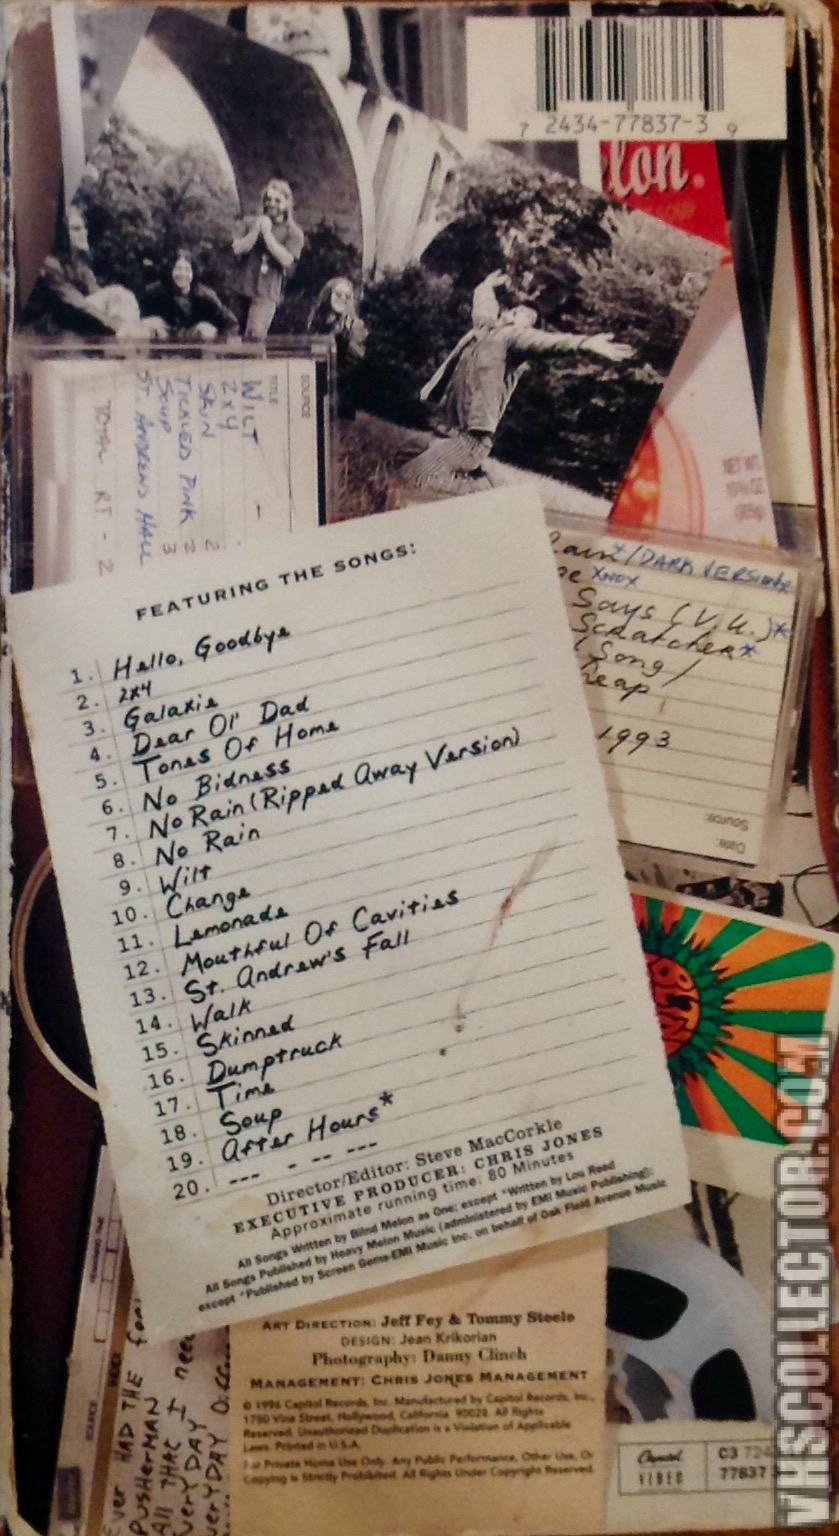 7 2434-77837-3 9
lon.
SOURCE
TITLE
WILT
2x4
SKIN
TICKLED PINK
SOUP
ST. ANDREWS HALL
TOTAL RT - 2
NET WT.
10¾ OZ
(305g)
FEATURING THE SONGS:
1. Hello, Goodbye
2. 2x4
3. Galaxie
4. Dear Ol' Dad
5. Tones Of Home
6. No Bidness
7. No Rain (Ripped Away Version)
8. No Rain
9. Wilt
10. Change
11. Lemonade
12. Mouthful Of Cavities
13. St. Andrew's Fall
14. Walk
15. Skinned
16. Dumptruck
17. Time
18. Soup
19. After Hours*
20. --- - -- ---
Director/Editor: Steve MacCorkle
EXECUTIVE PRODUCER: CHRIS JONES
Approximate running time: 80 Minutes
All Songs Written by Blind Melon as One; except *Written by Lou Reed
All Songs Published by Heavy Melon Music (administered by EMI Music Publishing);
except *Published by Screen Gems-EMI Music Inc. on behalf of Oak Field Avenue Music
ain*/DARK VERSION*
XNOX
Says (V.U.)*
Scratcher*
Song/
heap
1993
Source:
Date:
ART DIRECTION: Jeff Fey & Tommy Steele
DESIGN: Jean Krikorian
Photography: Danny Clinch
MANAGEMENT: CHRIS JONES MANAGEMENT
© 1996 Capitol Records, Inc. Manufactured by Capitol Records, Inc.,
1750 Vine Street, Hollywood, California 90028. All Rights
Reserved. Unauthorized Duplication is a Violation of Applicable
Laws. Printed in U.S.A.
For Private Home Use Only. Any Public Performance, Other Use, Or
Copying is Strictly Prohibited. All Rights Under Copyright Reserved.
SOURCE
INDEX
Ever HAD THE
PUSHERMAN
All THAT I need
VerYDAY
verYDAY
Capitol
VIDEO
C3 724
77837
VHSCOLLECTOR.COM